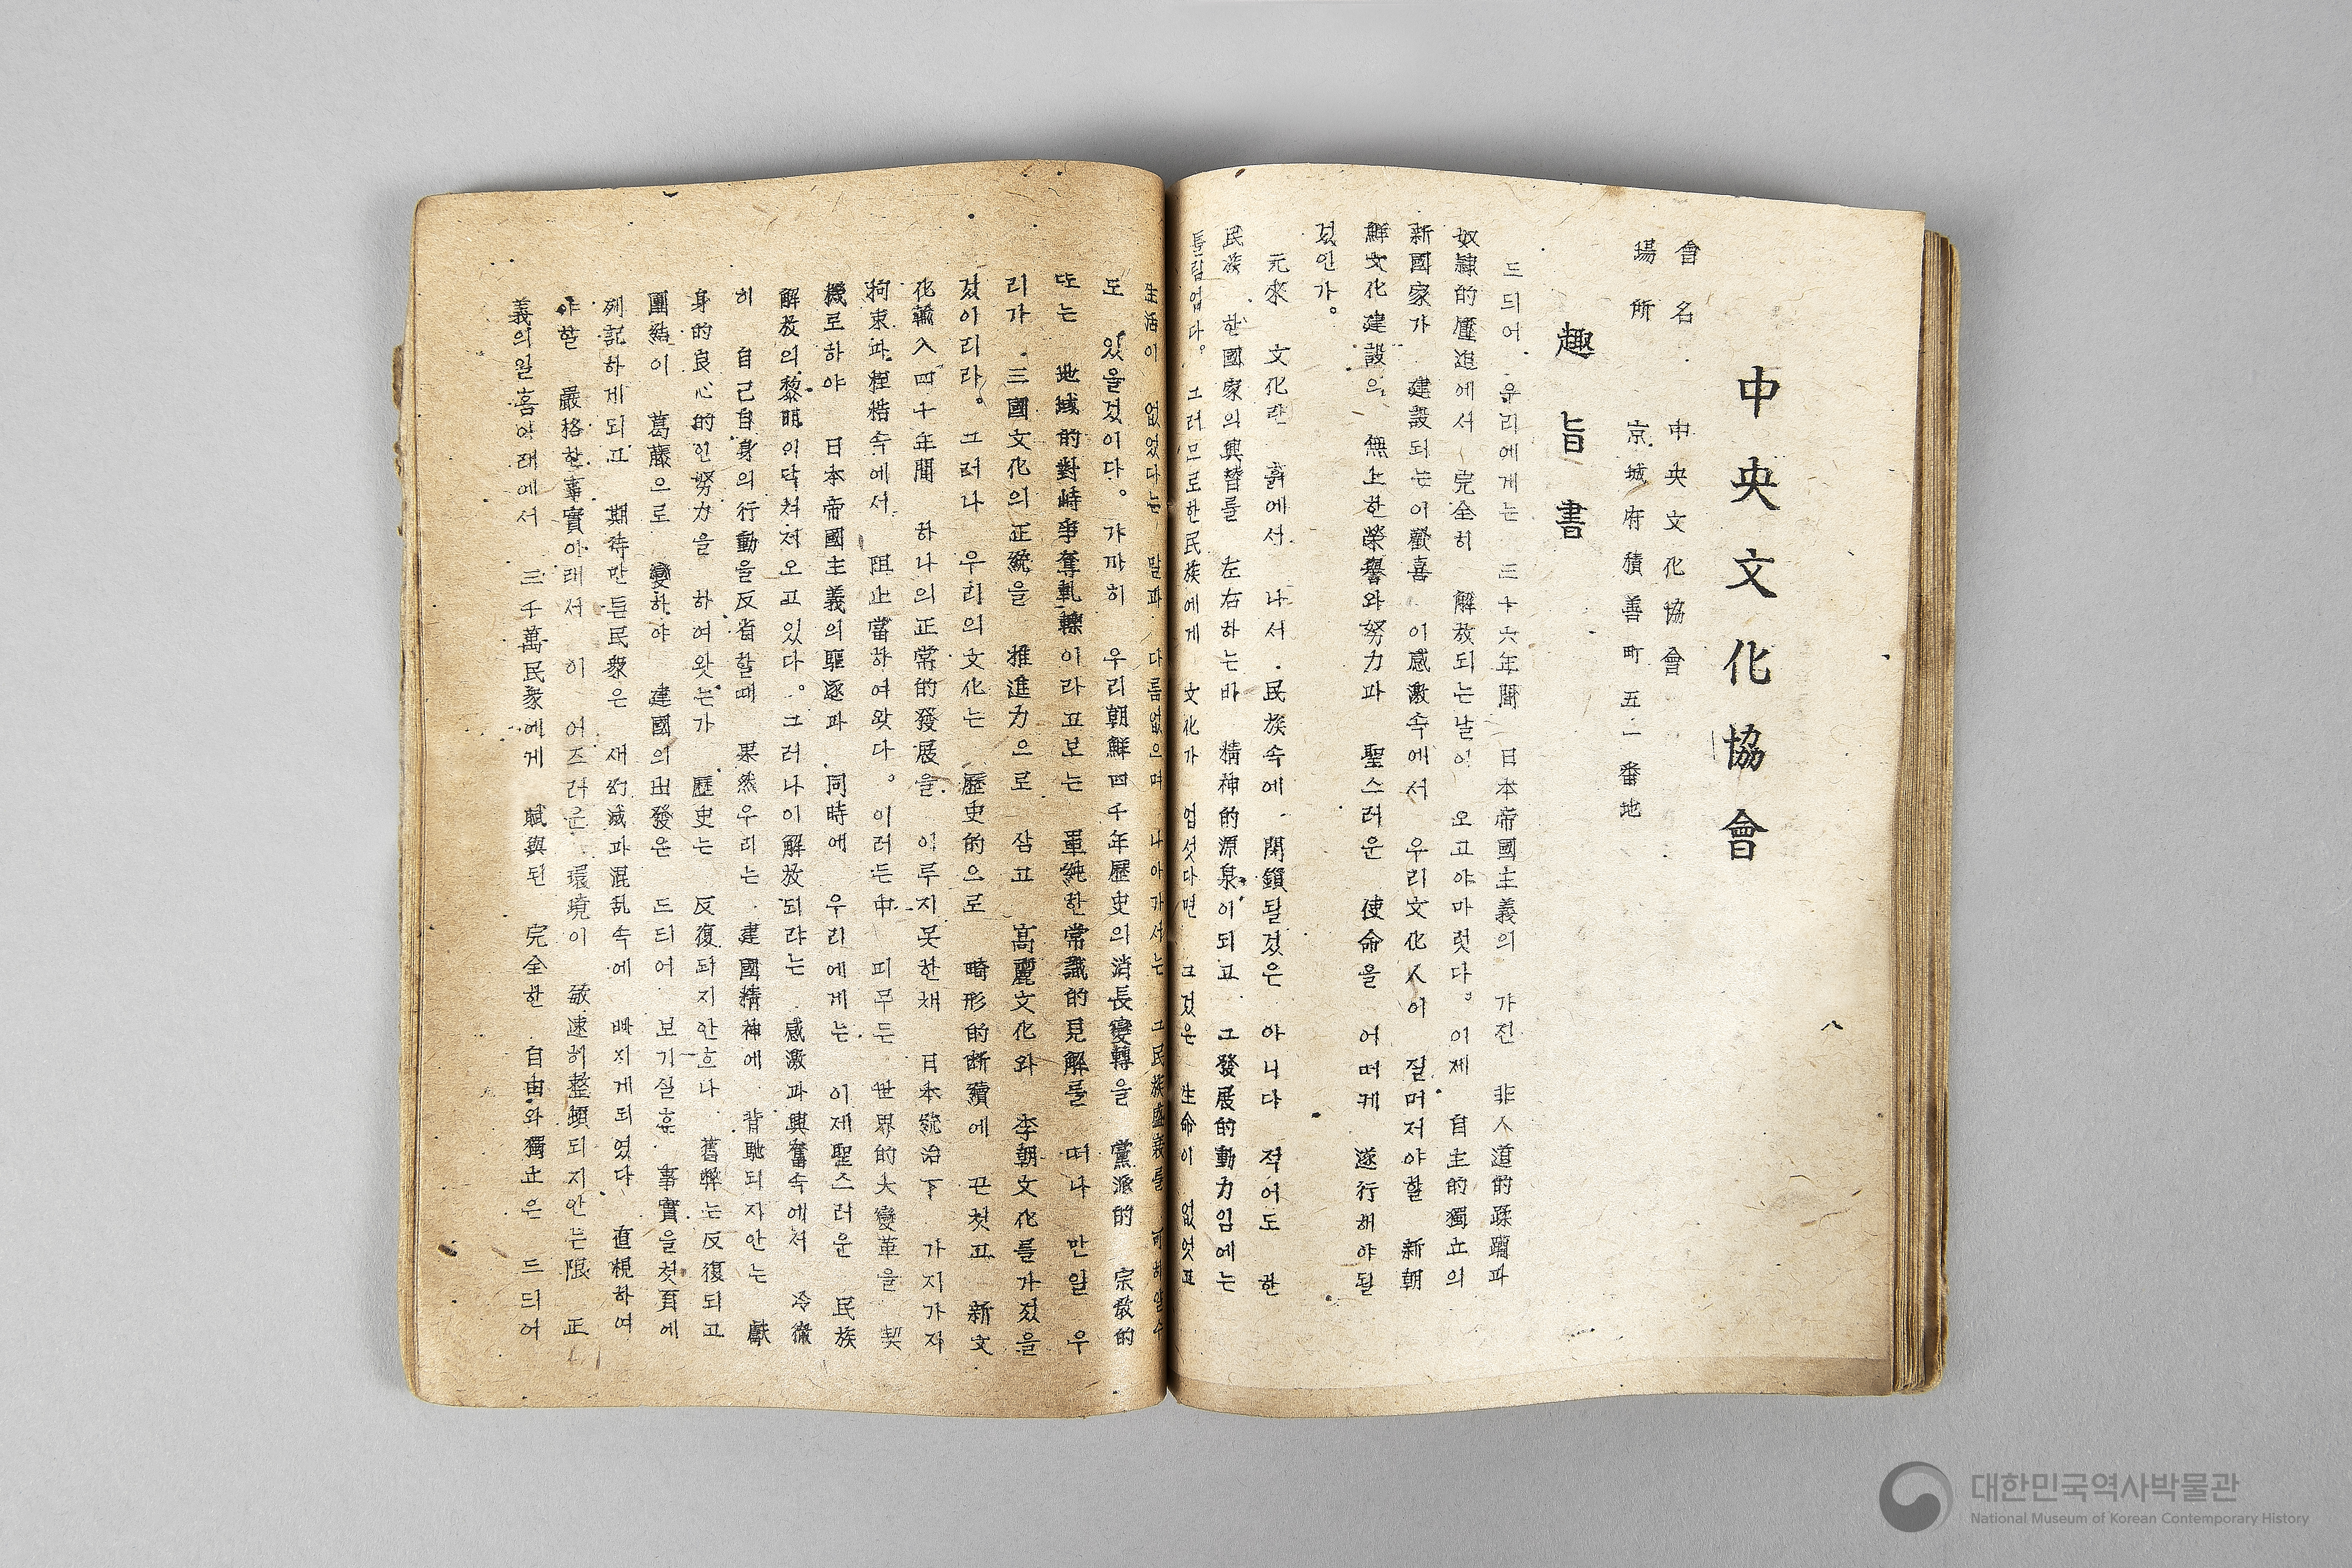 中央文化協會
會名 中央文化協會
場所 京城府積善町五二番地
趣旨書
드듸어 우리에게는 三十六年間 日本帝國主義의 가진 非人道的蹂躙과
奴隷的壓迫에서 完全히 解放되는날이 오고야마럿다。이제 自主的獨立의
新國家가 建設되는이歡喜 이感激속에서 우리文化人이 질머저야할 新朝
鮮文化建設의 無上한榮譽와努力과 聖스러운 使命을 어떠케 遂行해야될
것인가。
元來 文化란 흙에서 나서 民族속에 閉鎖될것은 아니다 적어도 한
民族 한國家의興替를 左右하는바 精神的源泉이되고 그發展的動力임에는
틀림업다。 그러므로한民族에게 文化가 업섯다면 그것은 生命이 없엇고
生活이 없었다는 말과 다름없으며 나아가서는 그民族盛衰를 可히알수
도 있을것이다。 가까히 우리朝鮮四千年歷史의消長變轉을 黨派的 宗敎的
또는 地域的對峙爭奪軋轢이라고보는 單純한常識的見解를 떠나 만일 우
리가 三國文化의正統을 推進力으로 삼고 高麗文化와 李朝文化를가젔을
것이리라。그러나 우리의文化는 歷史的으로 畸形的斷續에 끈첫고 新文
化輸入四十年間 하나의正常的發展을 이루지못한채 日本統治下 가지가지
拘束과桎梏속에서 阻止當하여왓다。이러든中 피무든 世界的大變革을 契
機로하야 日本帝國主義의驅逐과 同時에 우리에게는 이제聖스러운 民族
解放의黎明이닥처저오고있다。그러나이解放되랴는 感激과興奮속에서 冷徹
히 自己自身의行動을反省할때 果然우리는 建國精神에 背馳되지안는 獻
身的良心的인努力을 하여왓는가 歷史는 反復되지안흐나 舊弊는反復되고
團結이 葛藤으로 變하야 建國의出發은 드듸어 보기실흔 事實을첫頁에
列記하게되고 期待만튼民衆은 새幻滅과混乱속에 빠지게되였다 直視하여
야할 嚴格한事實아래서 이 어즈러운 環境이 敏速히整頓되지안는限 正
義의일홈아래에서 三千萬民衆에게 賦與된 完全한 自由와獨立은 드듸어
八
대한민국역사박물관
National Museum of Korean Contemporary History